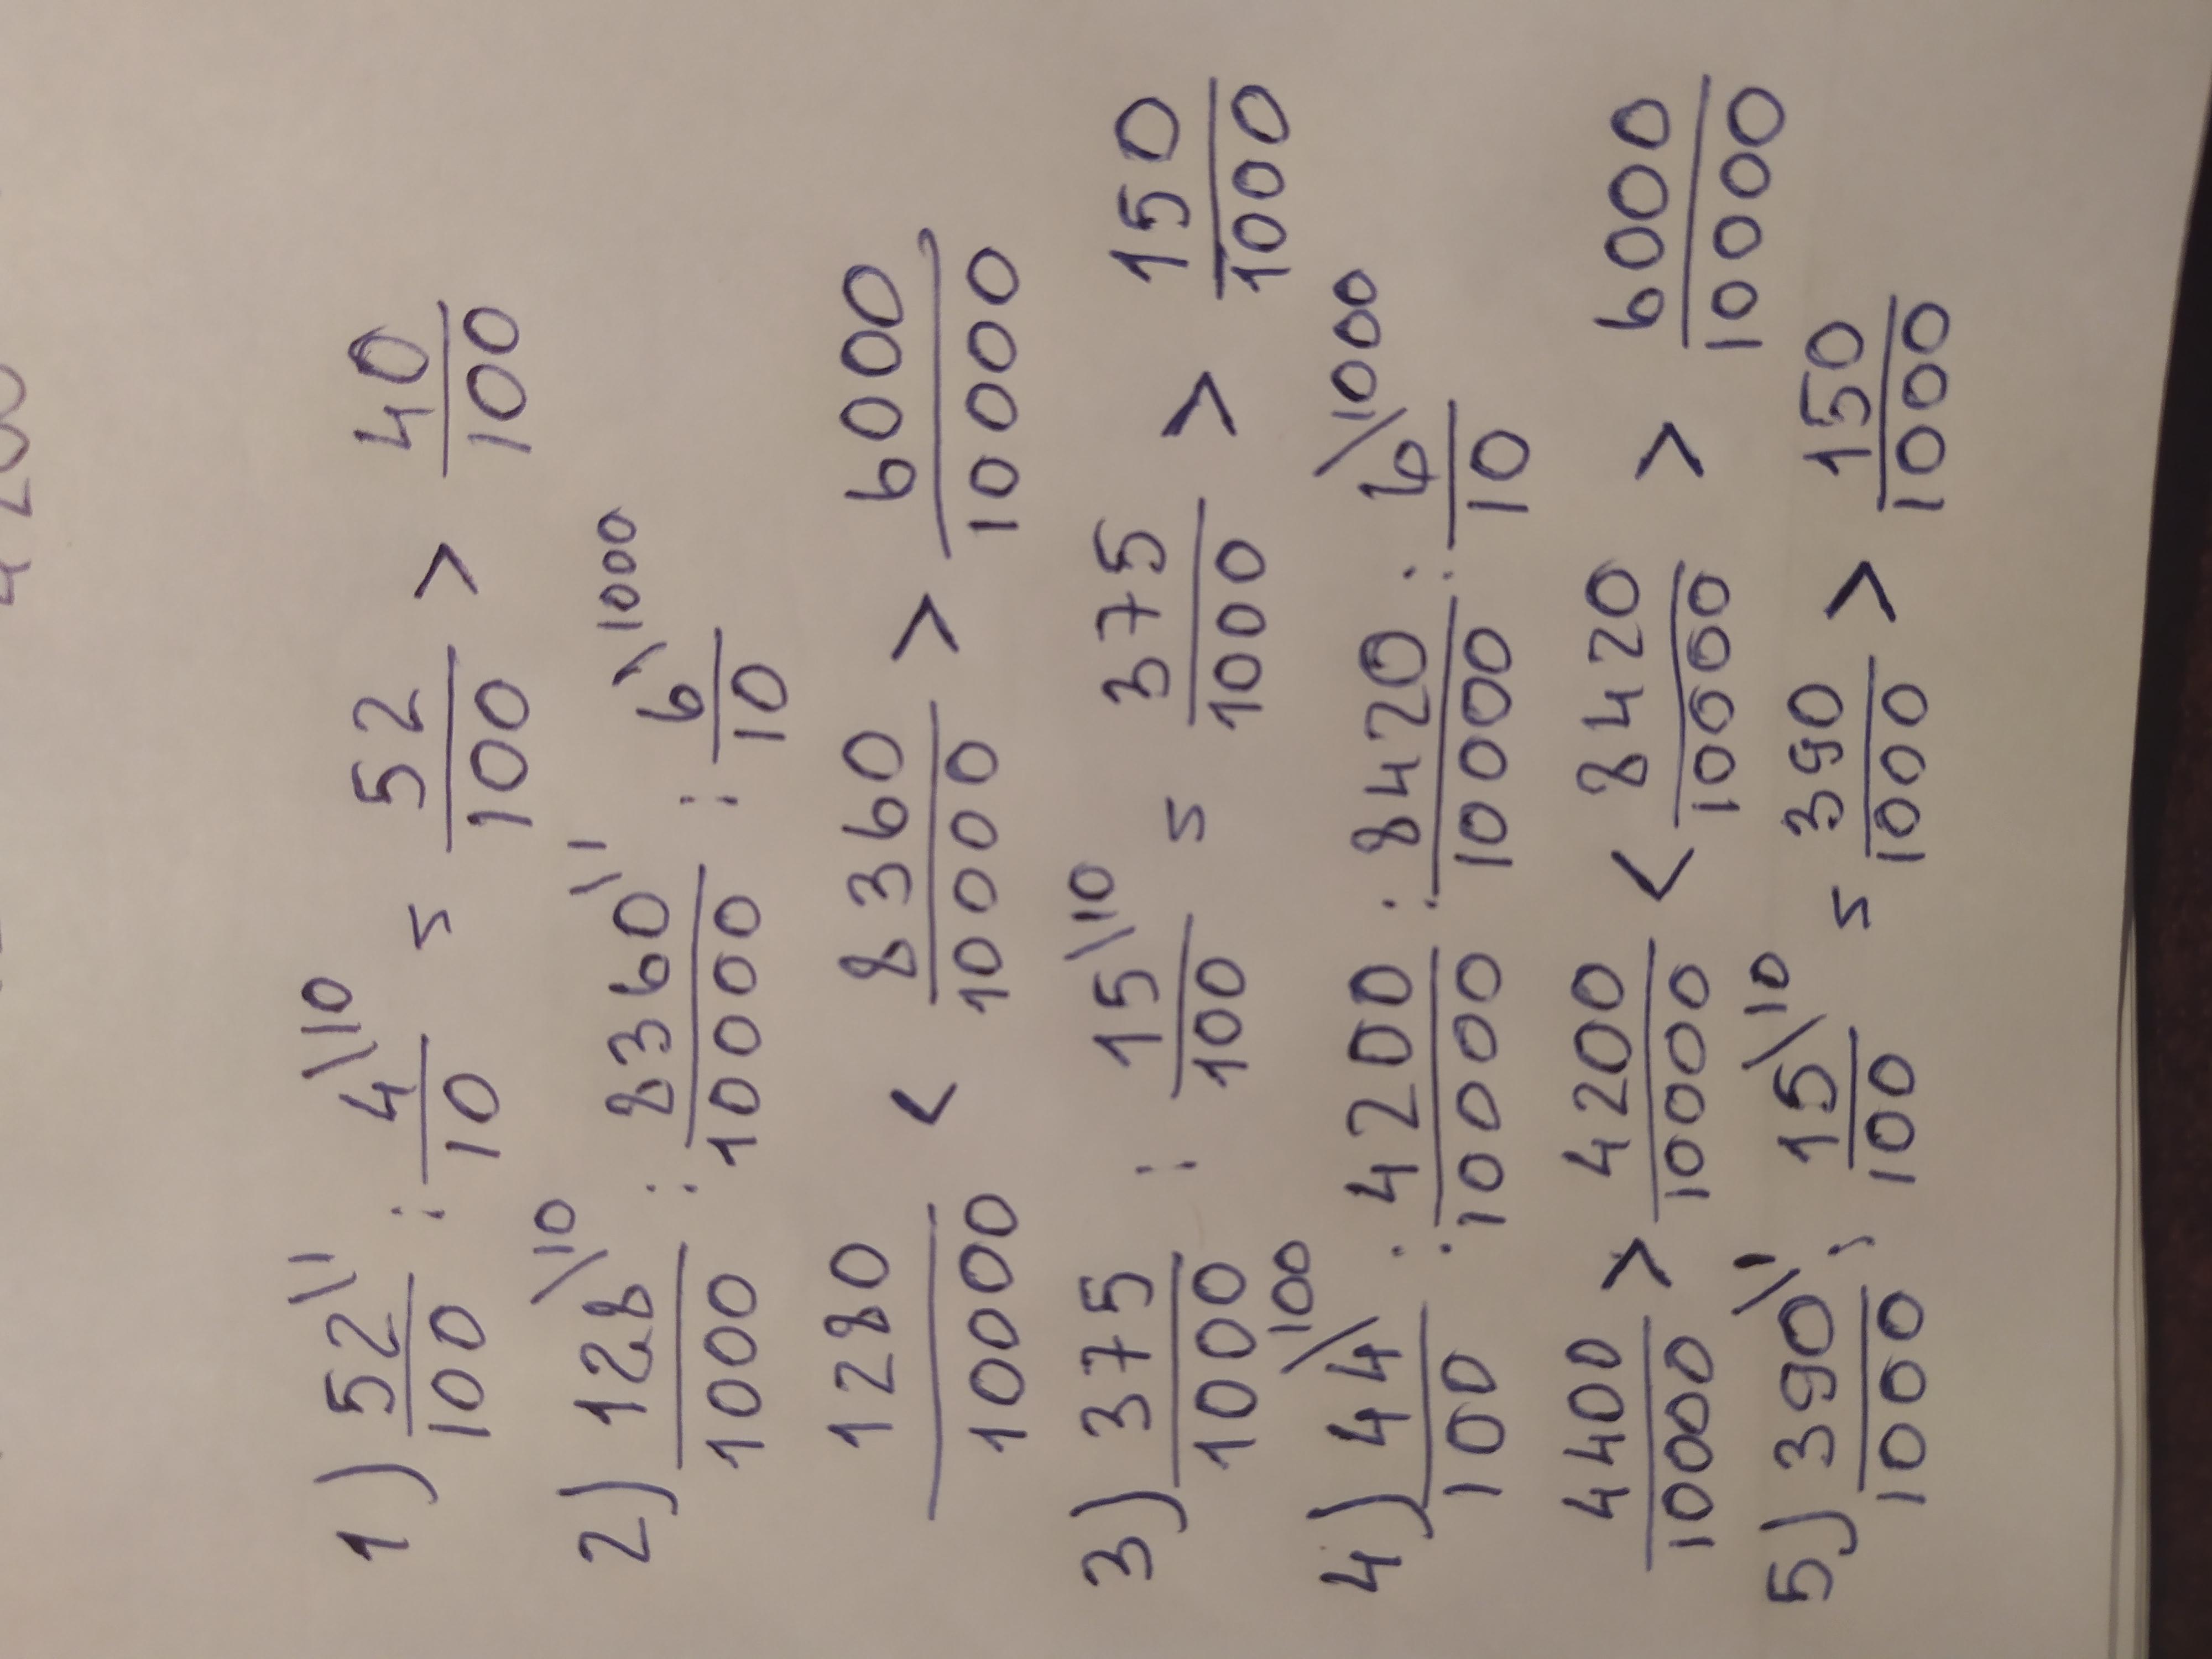 1) 52\1/100 : 4\10/10 = 52/100 > 40/100
2) 128\10/1000 : 8360\1/10000 : 6\1000/10
1280/10000 < 8360/10000 > 6000/10000
3) 375/1000 : 15\10/100 = 375/1000 > 150/1000
4) 44\100/100 : 4200/10000 : 8420/10000 : 6\1000/10
4400/10000 > 4200/10000 < 8420/10000 > 6000/10000
5) 390\1/1000 ; 15\10/100 = 390/1000 > 150/1000